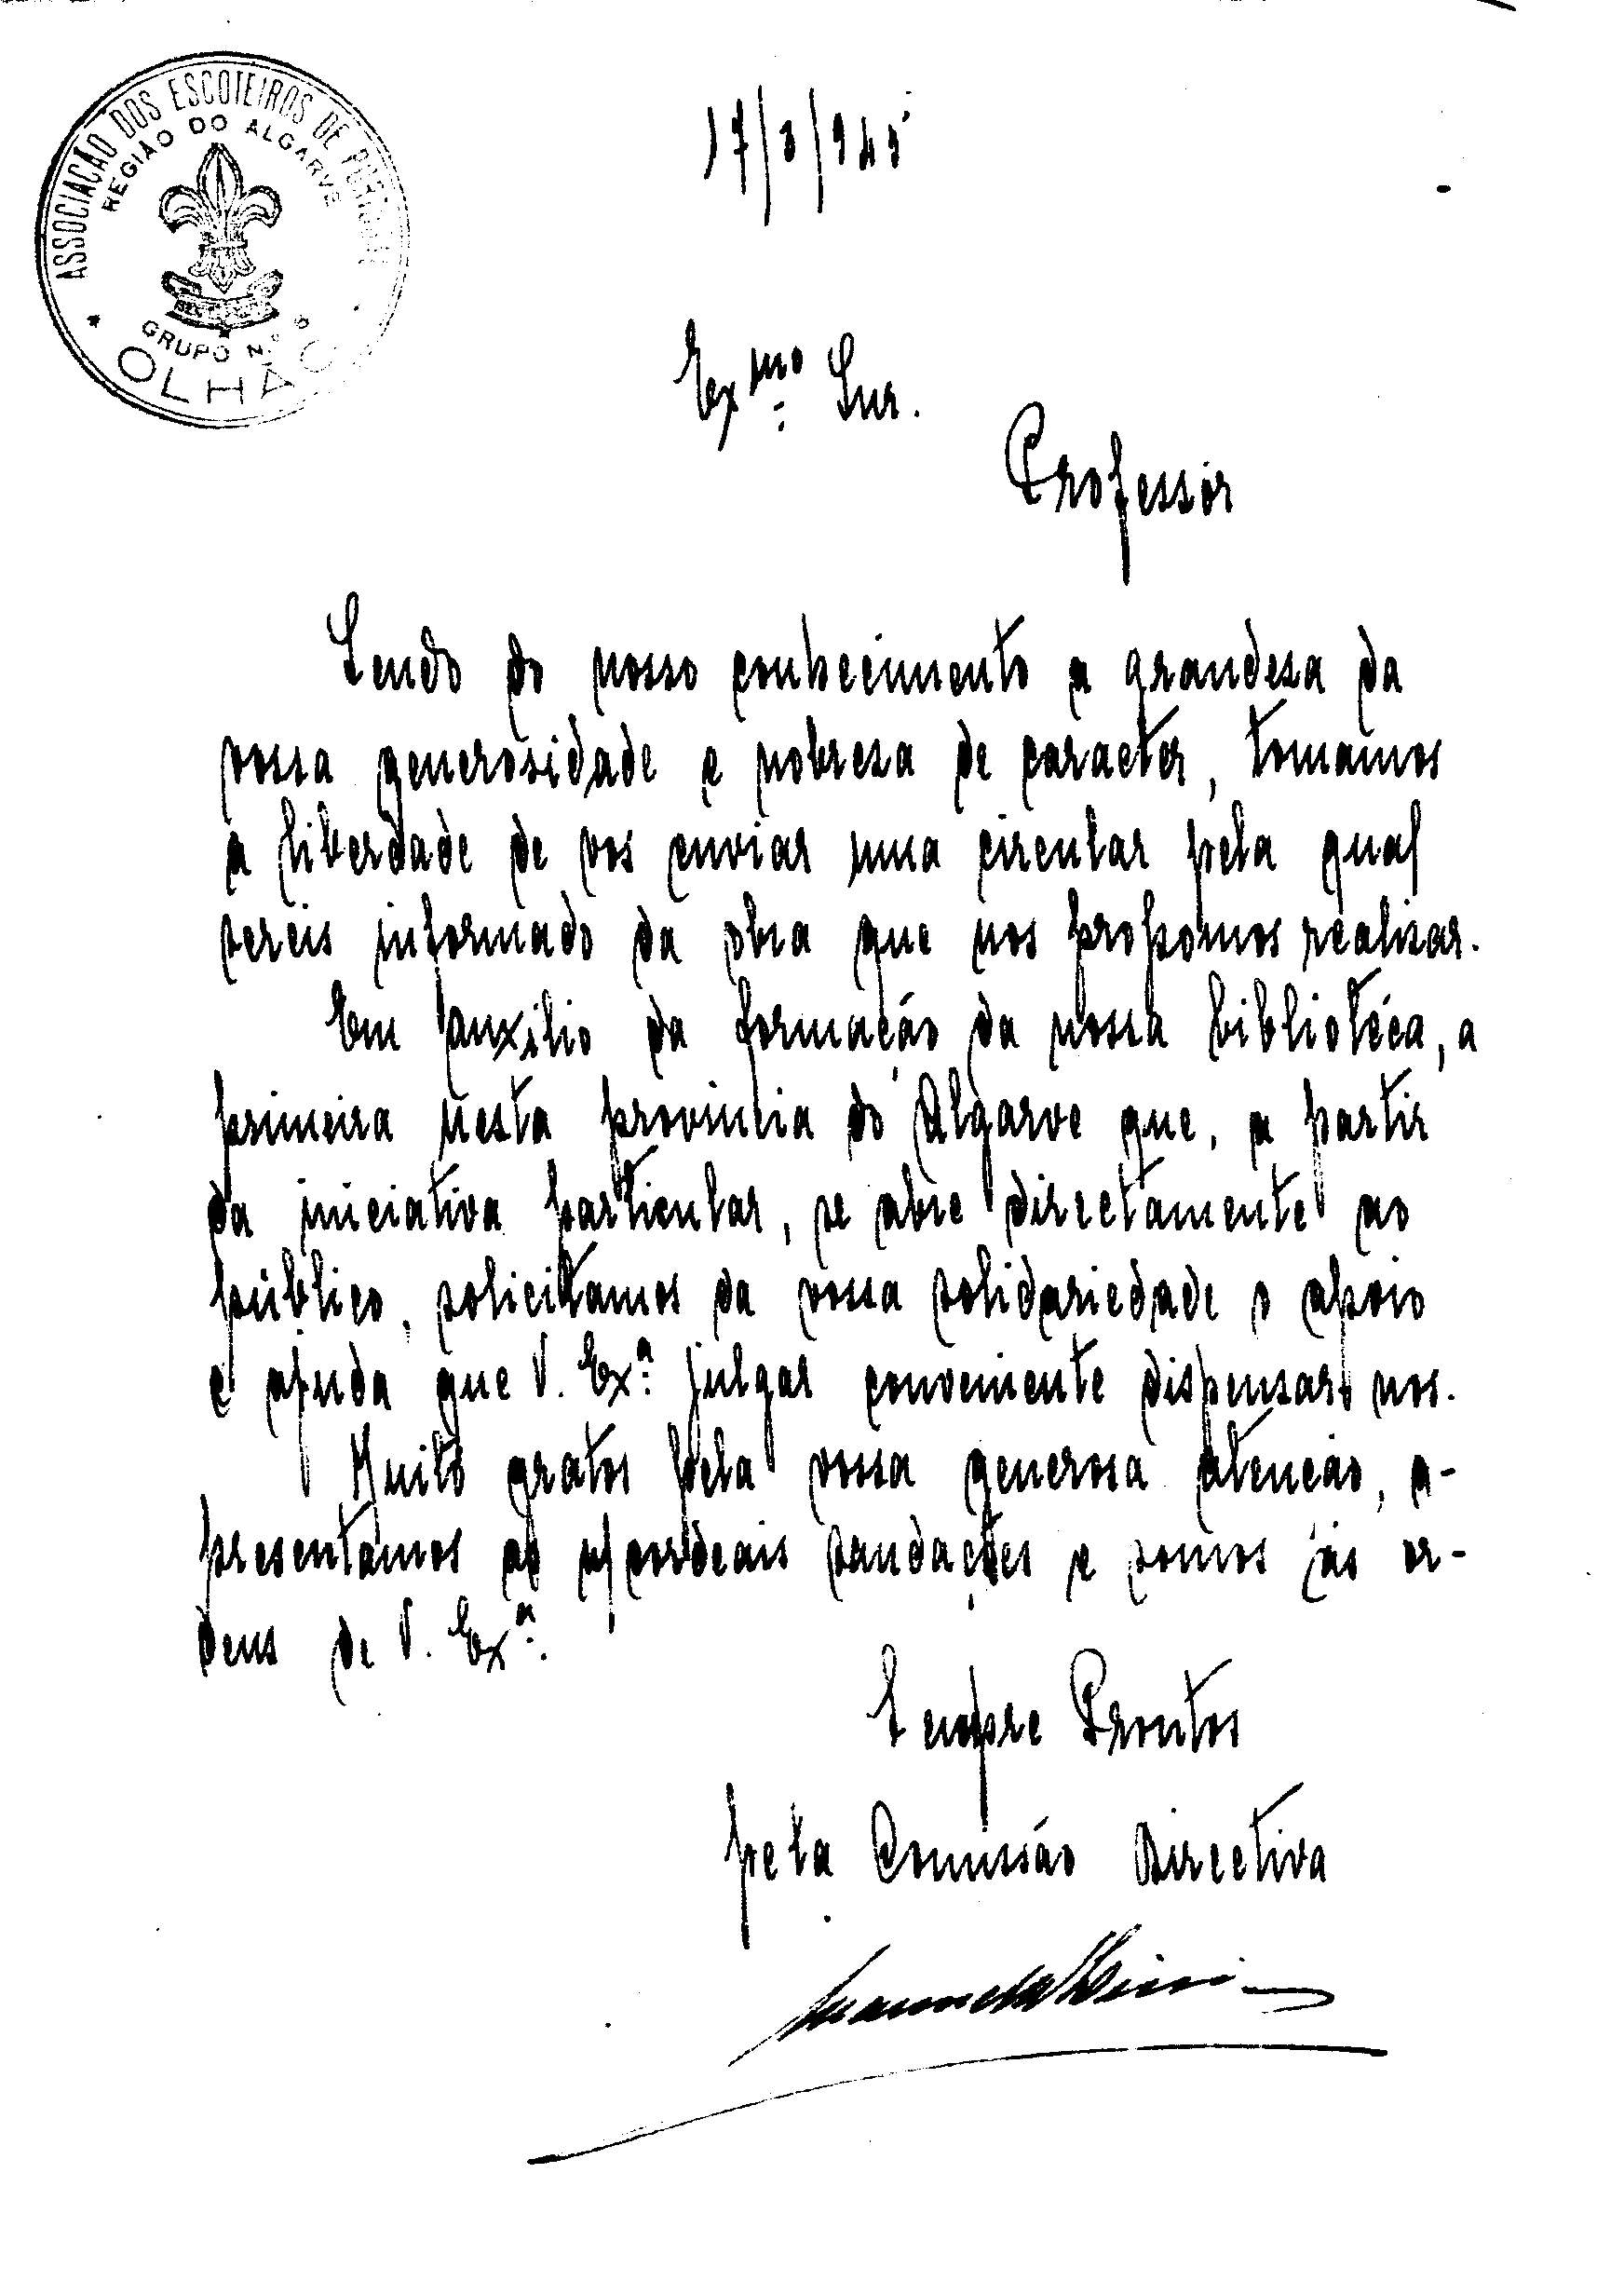 ASSOCIAÇÃO DOS ESCOTEIROS DE PORTUGAL
REGIÃO DO ALGARVE
GRUPO N.º 6
OLHÃO
17/3/945
Exmo. Snr.
Professor
Sendo do nosso conhecimento a grandesa da
vossa generosidade e nobresa de caracter, tomamos
a liberdade de vos enviar uma circular pela qual
sereis informado da obra que nos propomos realisar.
Em auxilio da formação da nossa bibliotéca, a
primeira nesta provincia do Algarve que, a partir
da iniciativa particular, se abre directamente ao
público, solicitamos da vossa solidariedade o apoio
e ajuda que V. Exª. julgar conveniente dispensar-nos.
Muito gratos pela vossa generosa atenção, a-
presentamos as n/ cordeais saudações e somos ás or-
dens de V. Exª.
Sempre Prontos
pela Comissão Directiva